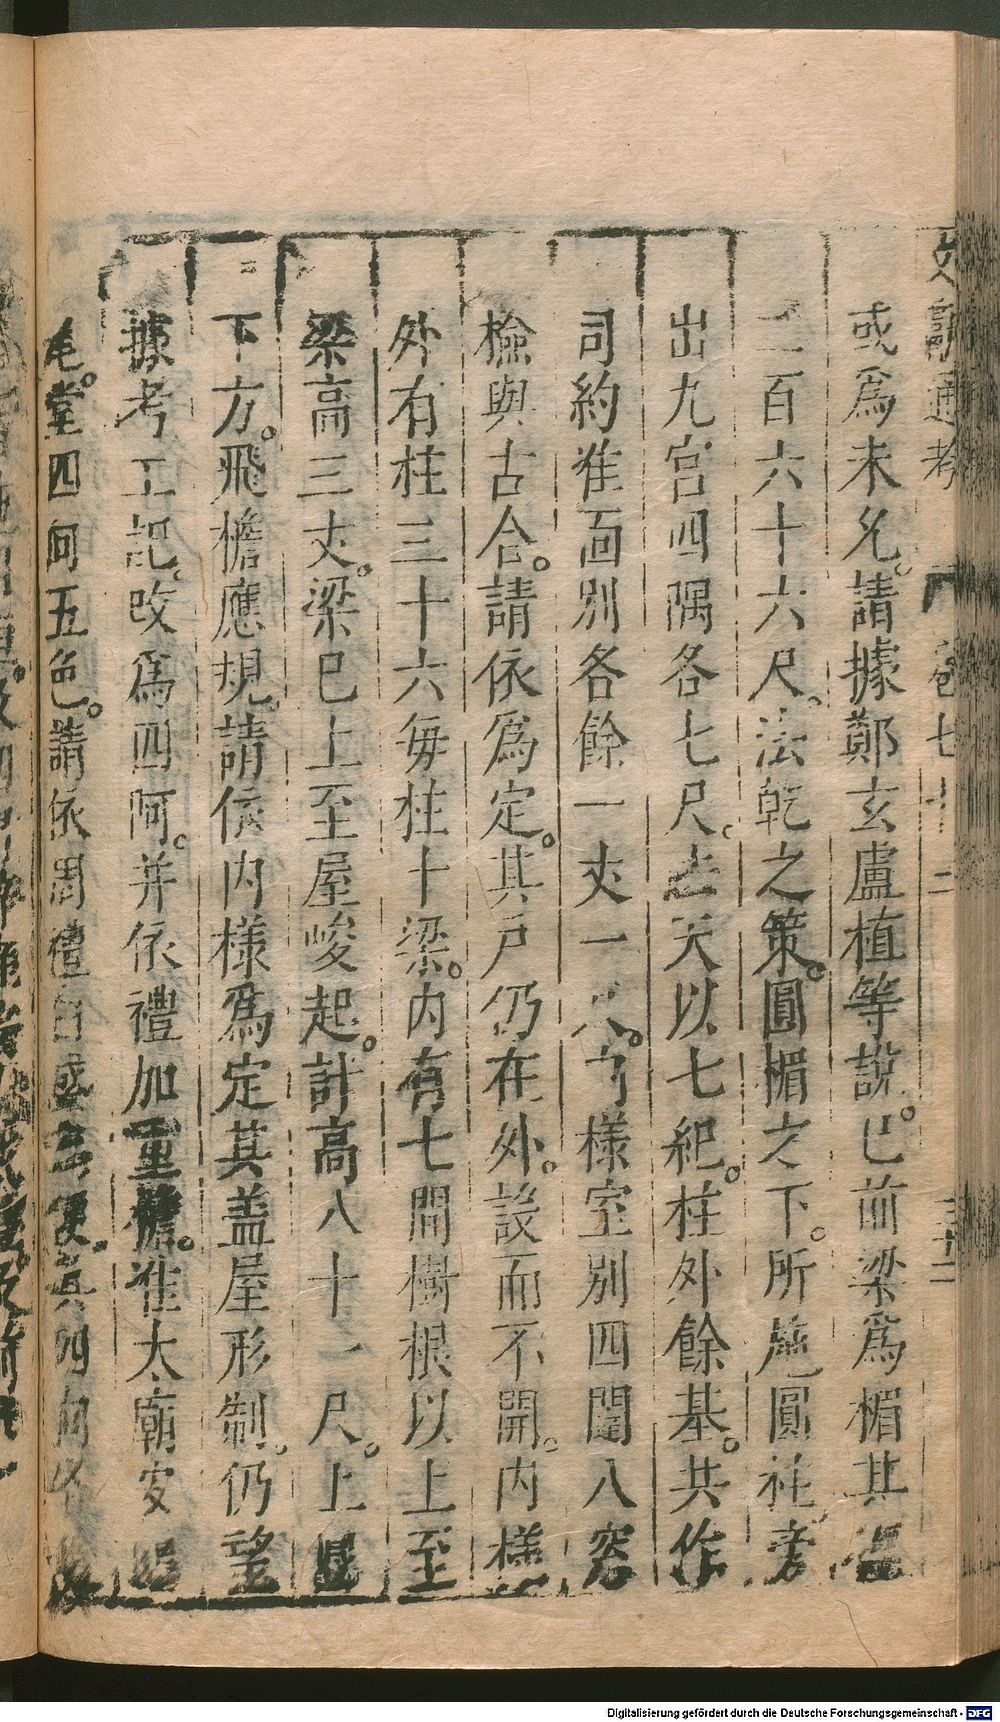 文獻通考 卷七十二
或爲未允。請據鄭玄盧植等說。已前梁爲楣其
二百六十六尺。法乾之策。圓楣之下。所施圓柱。旁
出九宮四隅各七尺。法天以七紀。柱外餘基。共作
司約准面別各餘一丈一尺。內樣室別四闥八窓
檢與古合。請依爲定。其戶仍在外。設而不開。內樣
外有柱三十六每柱十梁。內有七間樹根以上至
梁高三丈。梁已上至屋峻起。計高八十一尺。上圓
下方。飛檐應規。請依內樣爲定其盖屋形制。仍望
據考工記。改爲四阿。并依禮加重檐。准太廟安
尾。堂四向五色。請依周禮白盛爲便。其四向
Digitalisierung gefördert durch die Deutsche Forschungsgemeinschaft - DFG